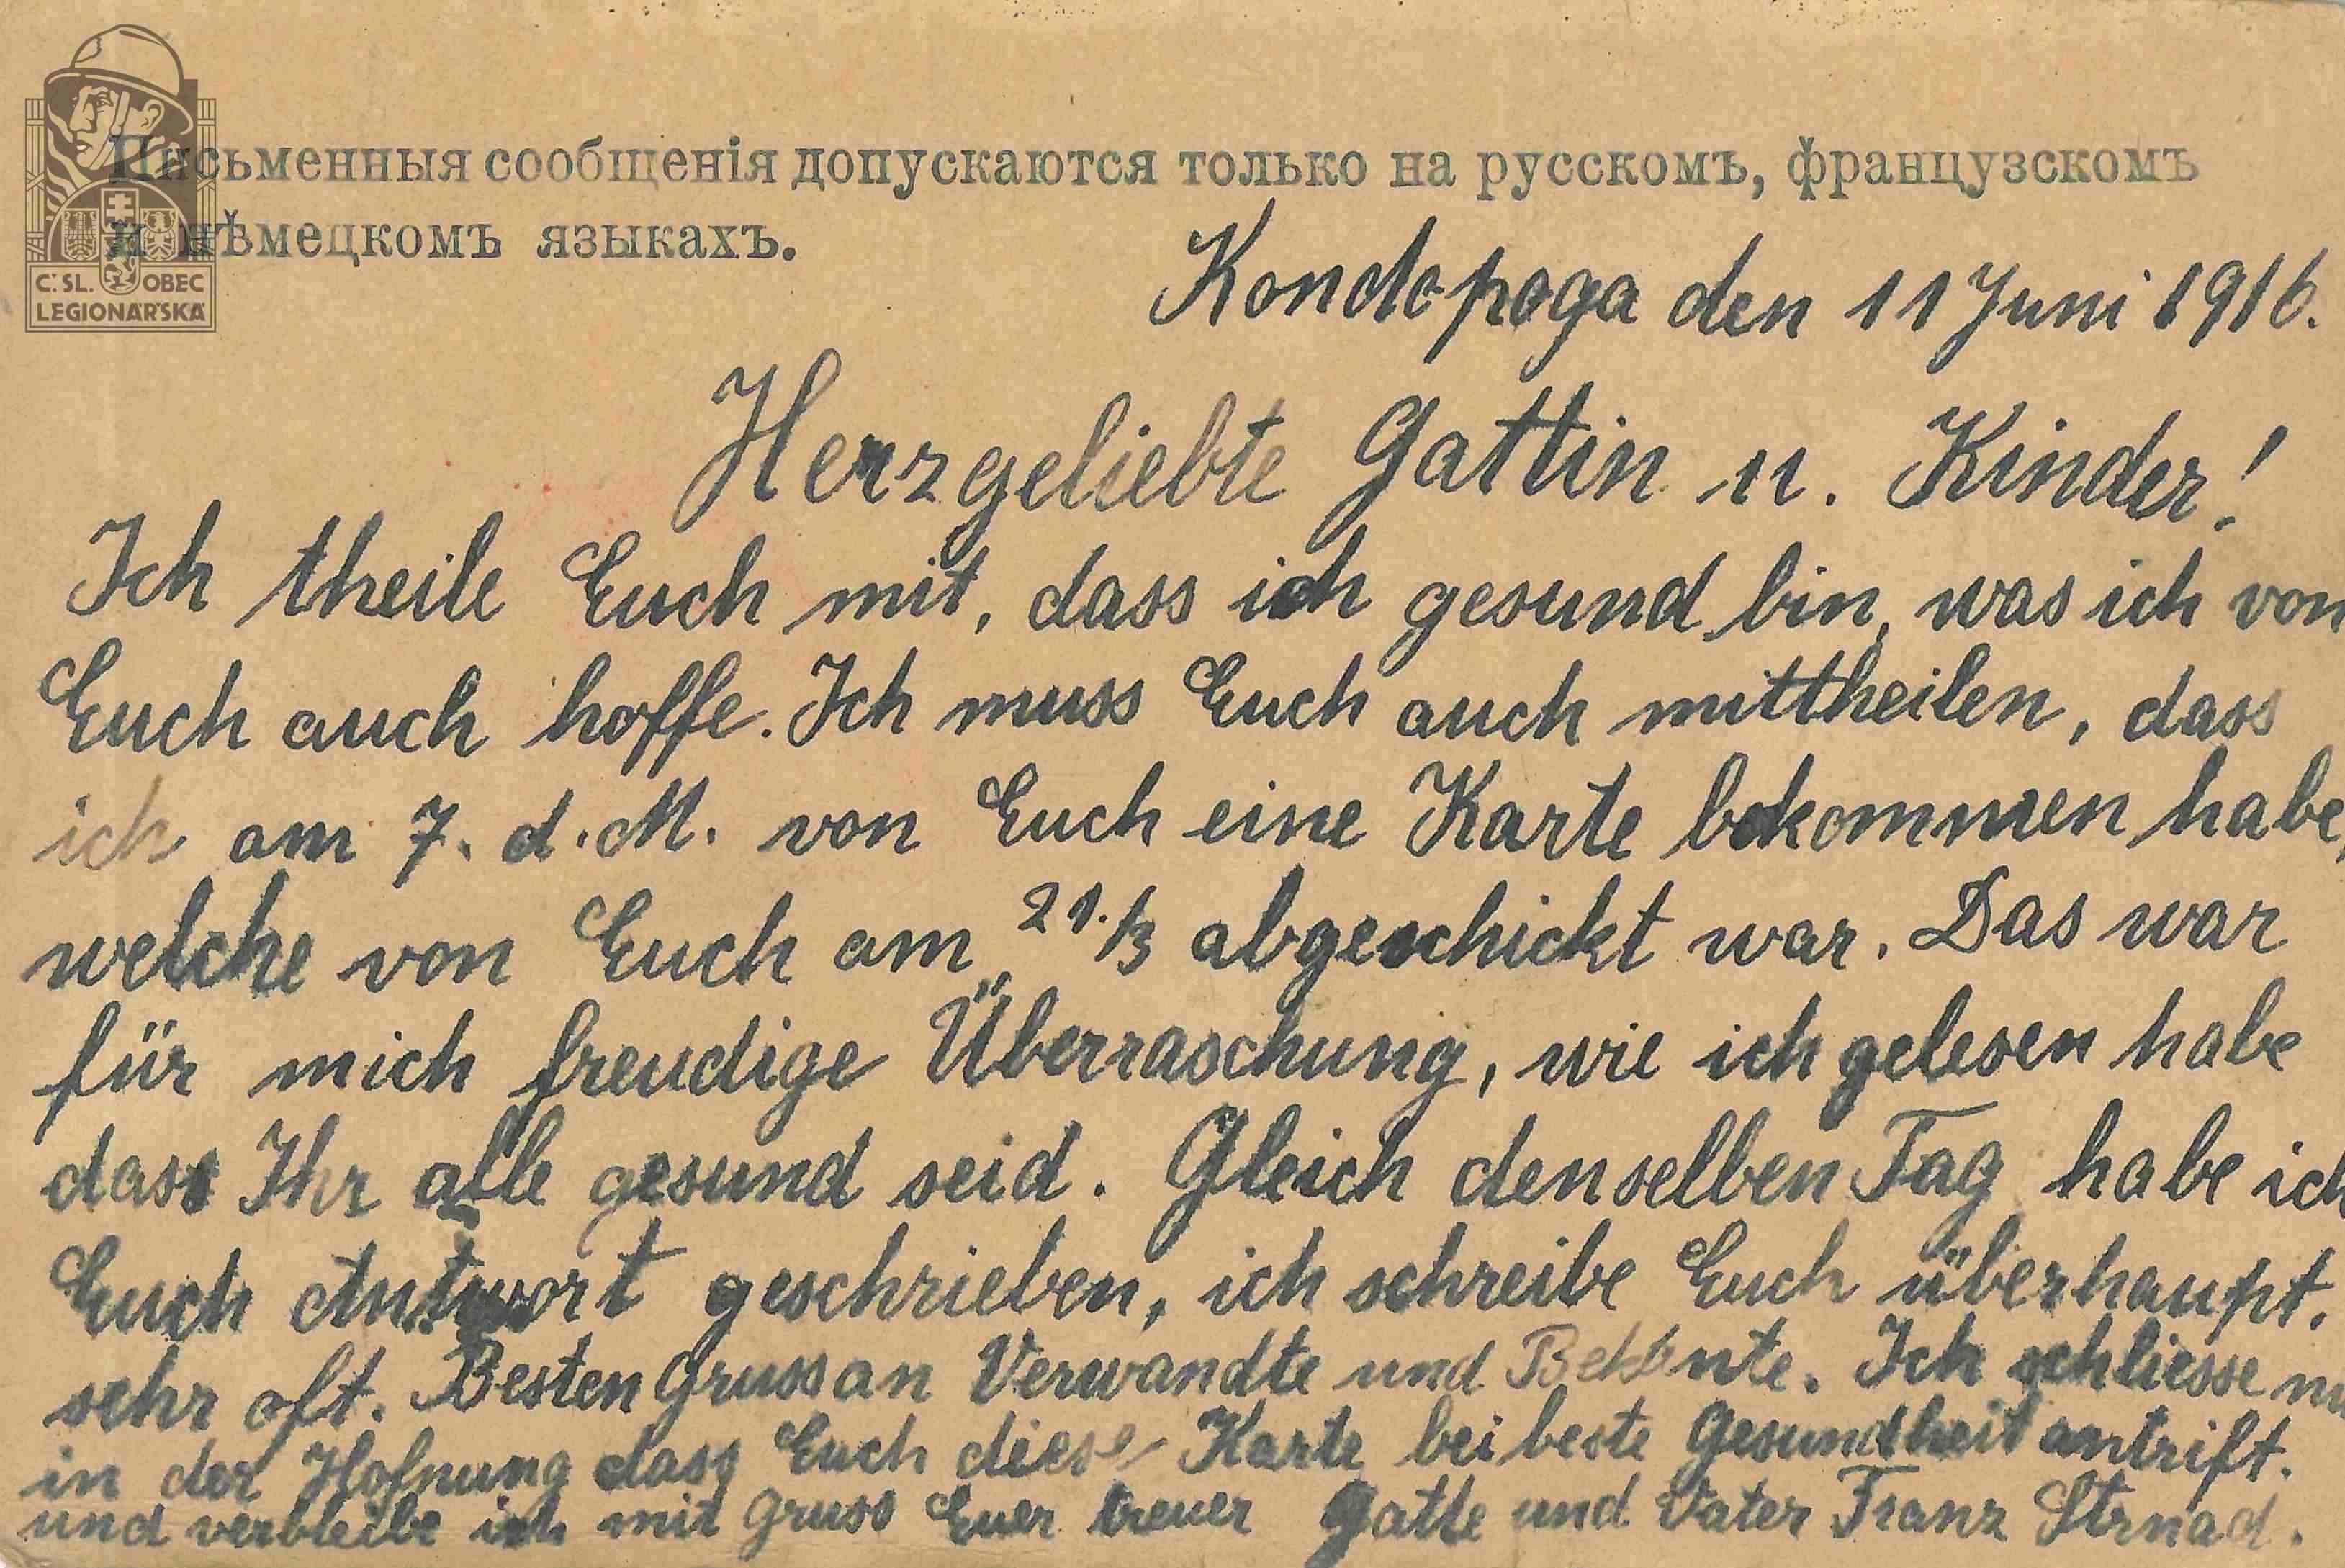 Письменныя сообщенія допускаются только на русскомъ, французскомъ
и нѣмецкомъ языкахъ.
Č.SL. OBEC
LEGIONÁŘSKÁ
Kondopoga den 11 Juni 1916.
Herzgeliebte Gattin u. Kinder!
Ich theile Euch mit, dass ich gesund bin, was ich von
Euch auch hoffe. Ich muss Euch auch mittheilen, dass
ich am 7. d. M. von Euch eine Karte bekommen habe,
welche von Euch am 21./3 abgeschickt war. Das war
für mich freudige Überraschung, wie ich gelesen habe
dass Ihr alle gesund seid. Gleich denselben Tag habe ich
Euch Antwort geschrieben, ich schreibe Euch überhaupt.
sehr oft. Besten Gruss an Verwandte und Bekante. Ich schliesse
in der Hofnung dass Euch diese Karte bei beste Gesundheit antrift.
und verbleibe ich mit Gruss Euer treuer Gatte und Vater Franz Strnad.